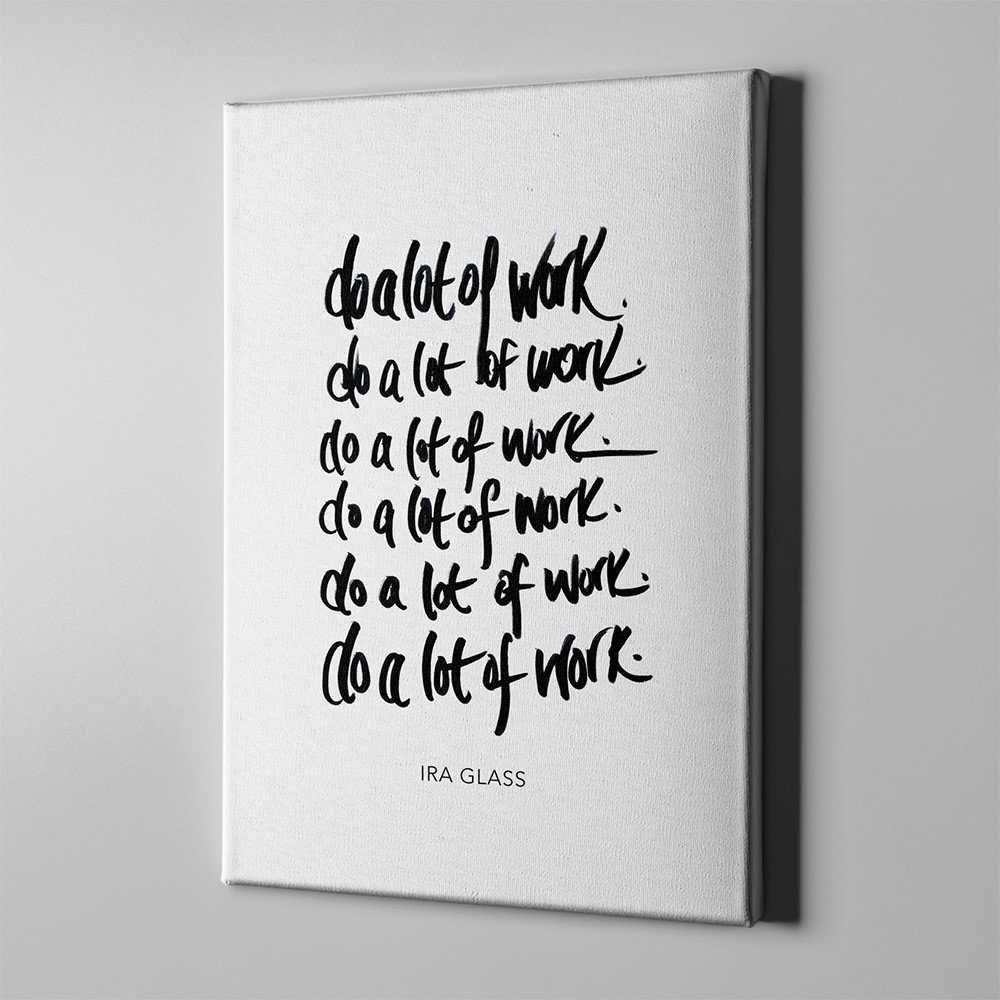 do a lot of work.
do a lot of work.
do a lot of work.
do a lot of work.
do a lot of work.
do a lot of work.
IRA GLASS